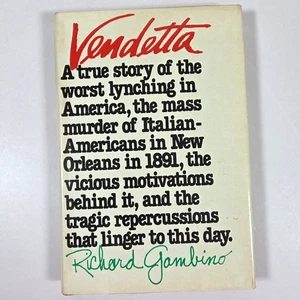 Vendetta
A true story of the
worst lynching in
America, the mass
murder of Italian-
Americans in New
Orleans in 1891, the
vicious motivations
behind it, and the
tragic repercussions
that linger to this day.
Richard Gambino